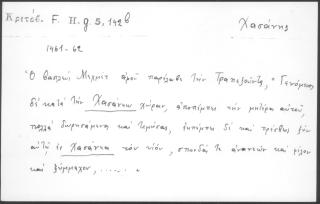 Κριτόβ. F. H. g. 5, 142 b
Χασάνης
1461-62
"Ὁ βασιλεὺς Μεχμὲτ ἀφοῦ παρέλαβε τὴν Τραπεζοῦντα, "Γενόμενος
δὲ κατὰ τὴν Χασάνεω χώραν, ἀποπέμπει τὴν μητέρα αὐτοῦ,
πολλὰ δωρησάμενος καὶ τιμήσας, ξυμπέμπει δὲ καὶ πρέσβυν ξὺν
αὐτῇ ἐς Χασάνεα τὸν υἱόν, σπονδάς τε ἀνανεῶν καὶ φίλον
καὶ ξύμμαχον, ......